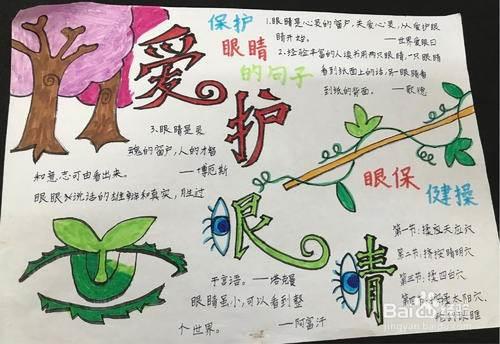 爱护眼睛
保护
眼睛
的句子
1.眼睛是心灵的窗户,关爱心灵,从爱护眼
睛开始。
——世界爱眼日
2.经验丰富的人读书用两只眼睛,一只眼睛
看到纸面上的话,另一眼睛看
到纸的背面。
——歌德
3.眼睛是灵
魂的窗户,人的才智
和意志可由看出来。
——博厄斯
眼睛说话的雄辩和真实,胜过
于言语。——塔克曼
眼睛虽小,可以看到整
个世界。——阿富汗
眼保
健操
第一节:揉天应穴
第二节:挤按睛明穴
第三节:揉四白穴
第四节:按太阳穴,
轮刮眼眶
Baidu经验
jingyan.baidu.com